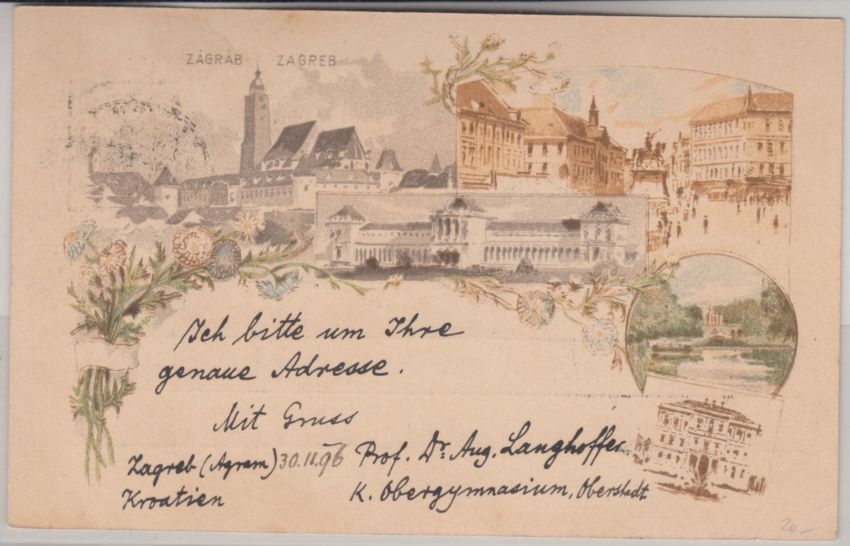 ZÁGRÁB ZAGREB
Ich bitte um Ihre
genaue Adresse.
Mit Gruss
Zagreb (Agram) 30.11.96 Prof. Dr Aug. Langhoffer
Kroatien K. Obergymnasium, Oberstadt.
20-